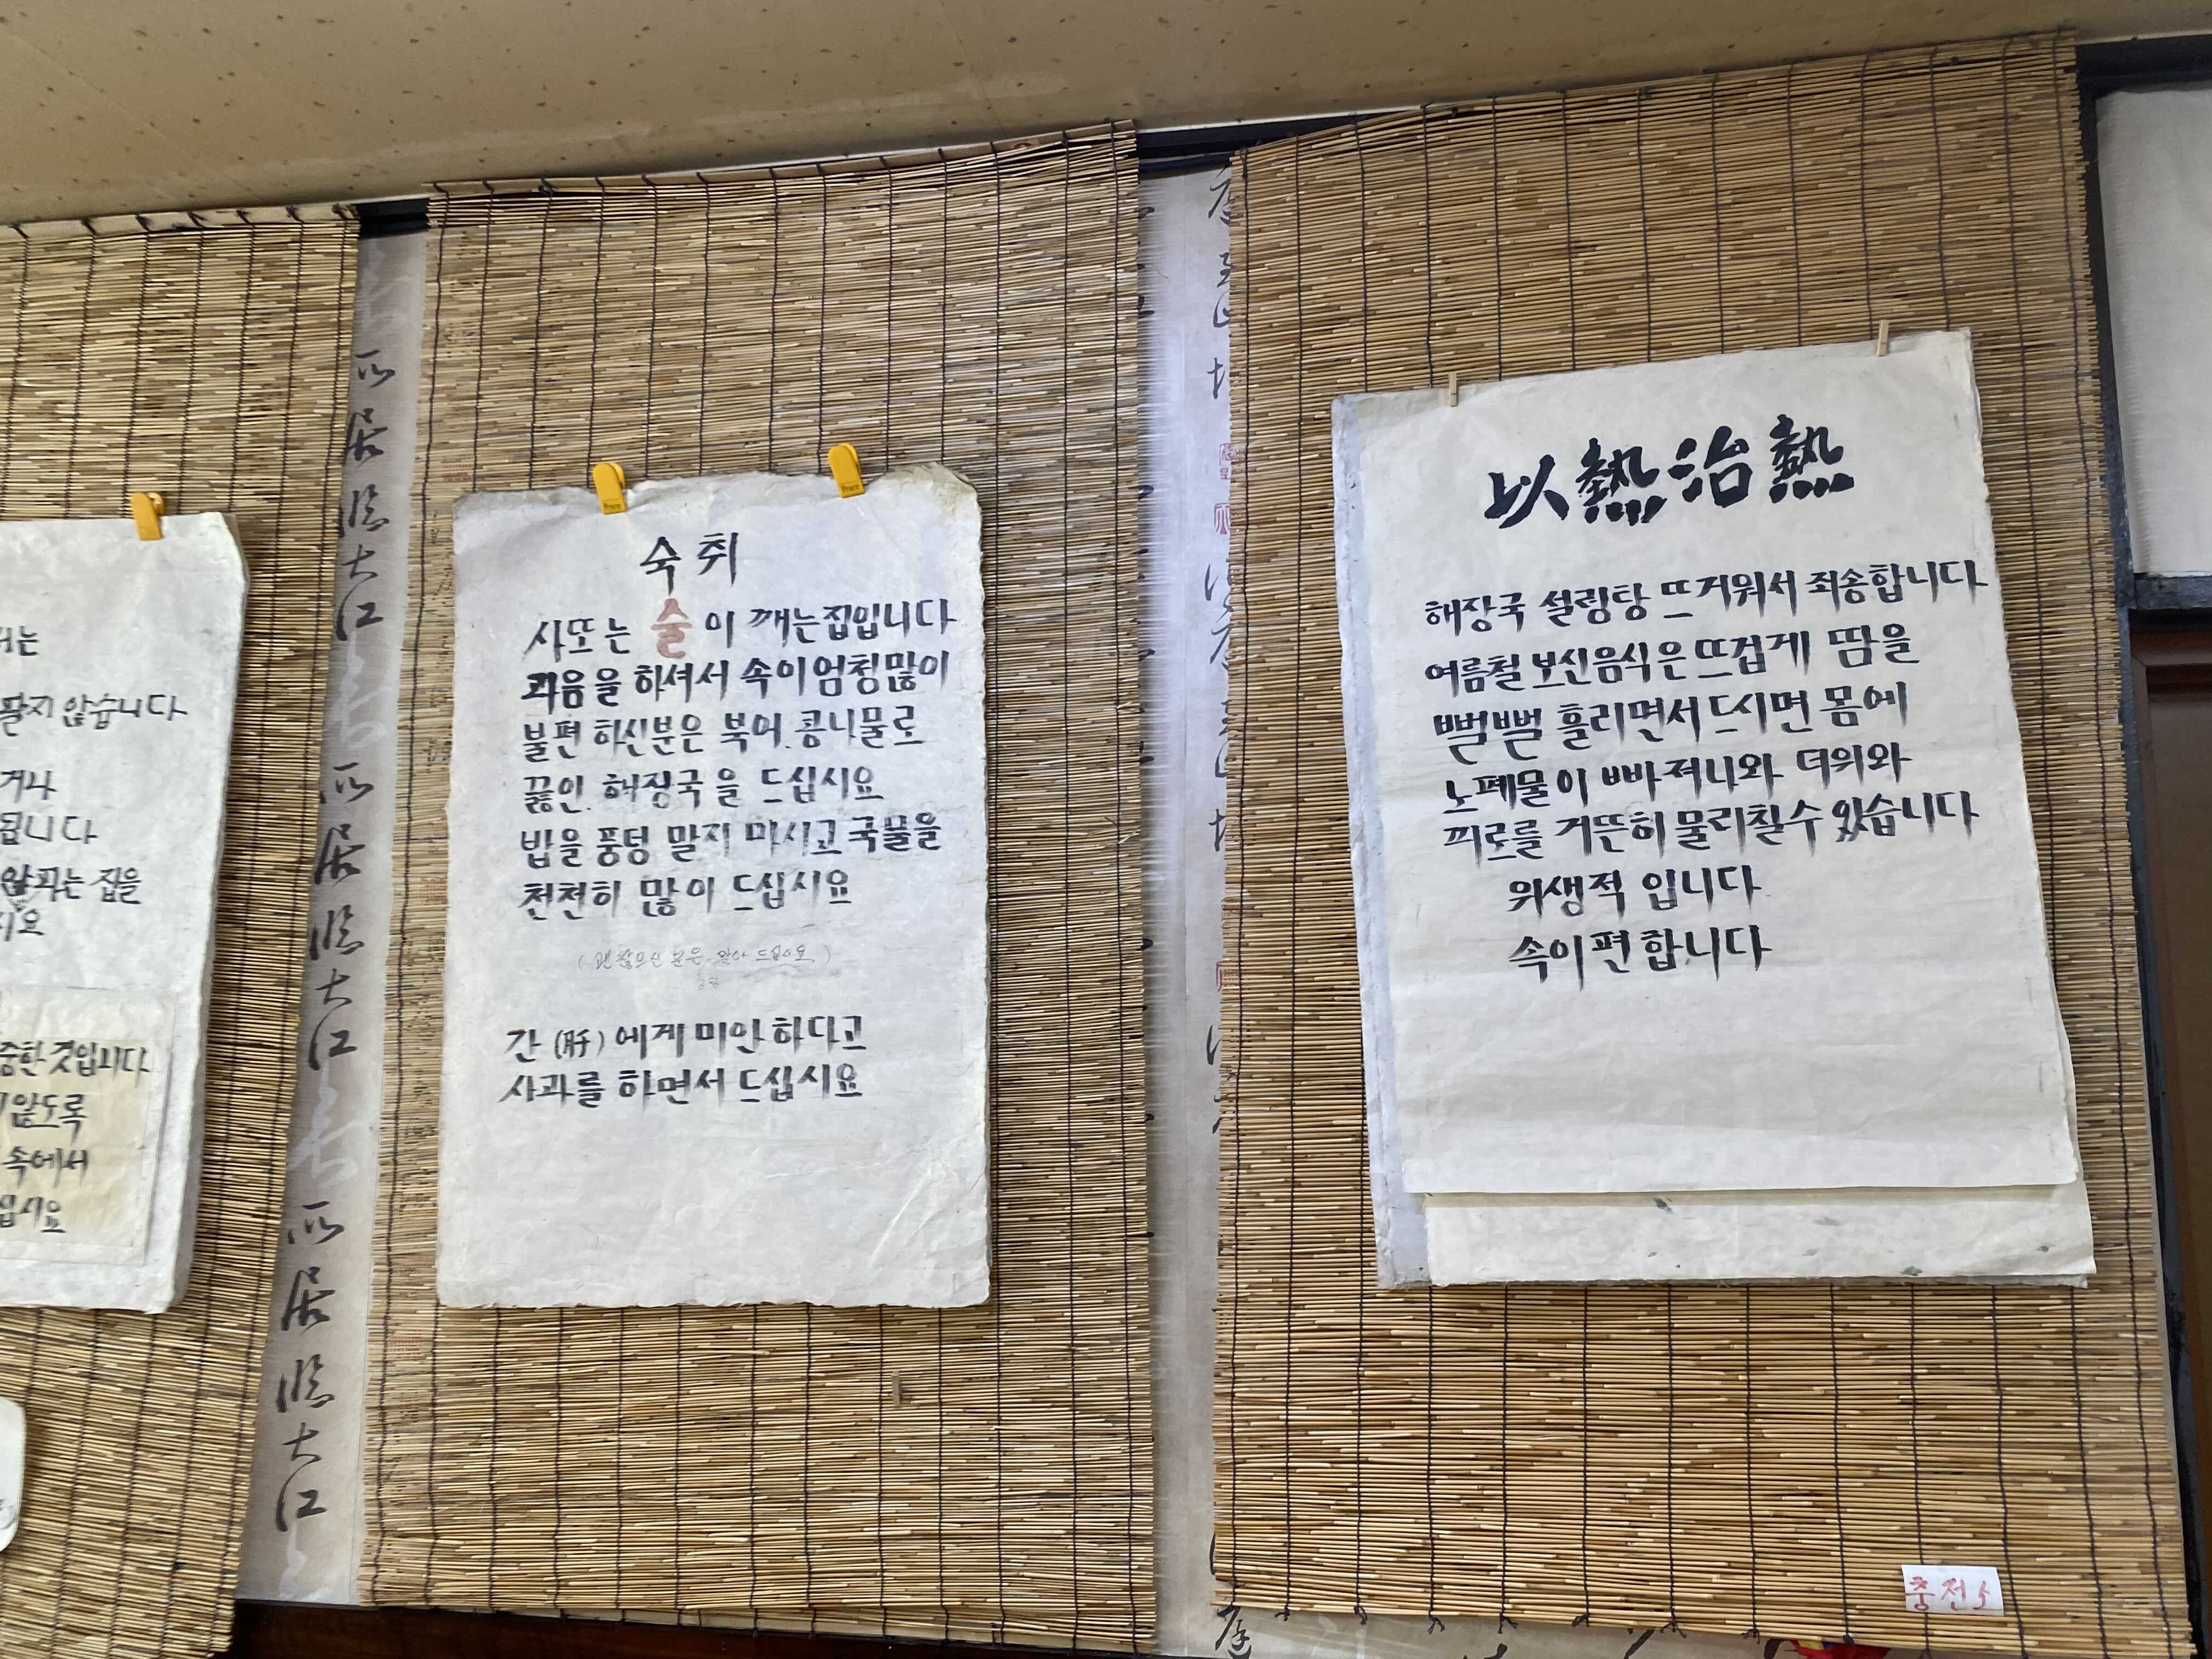 팔지 않습니다
거나
됩니다
않파는 집을
시요
중한 것입니다
않도록
속에서
십시요
숙취
사또는 술이 깨는집입니다
과음을 하셔서 속이엄청많이
불편 하신분은 북어.콩나물로
끓인. 해장국을 드십시요
밥을 풍덩 말지 마시고국물을
천천히 많이 드십시요
(괜찮으신 분은. 말아 드십시요)
간(肝)에게 미안하다고
사과를 하면서 드십시요
以熱治熱
해장국 설렁탕 뜨거워서 죄송합니다
여름철 보신음식은 뜨겁게 땀을
뻘뻘 흘리면서 드시면 몸에
노폐물이 빠져나와 더위와
피로를 거뜬히 물리칠수 있습니다
위생적 입니다
속이편합니다
居
大
江
居
大
江
居
大
江
충전소